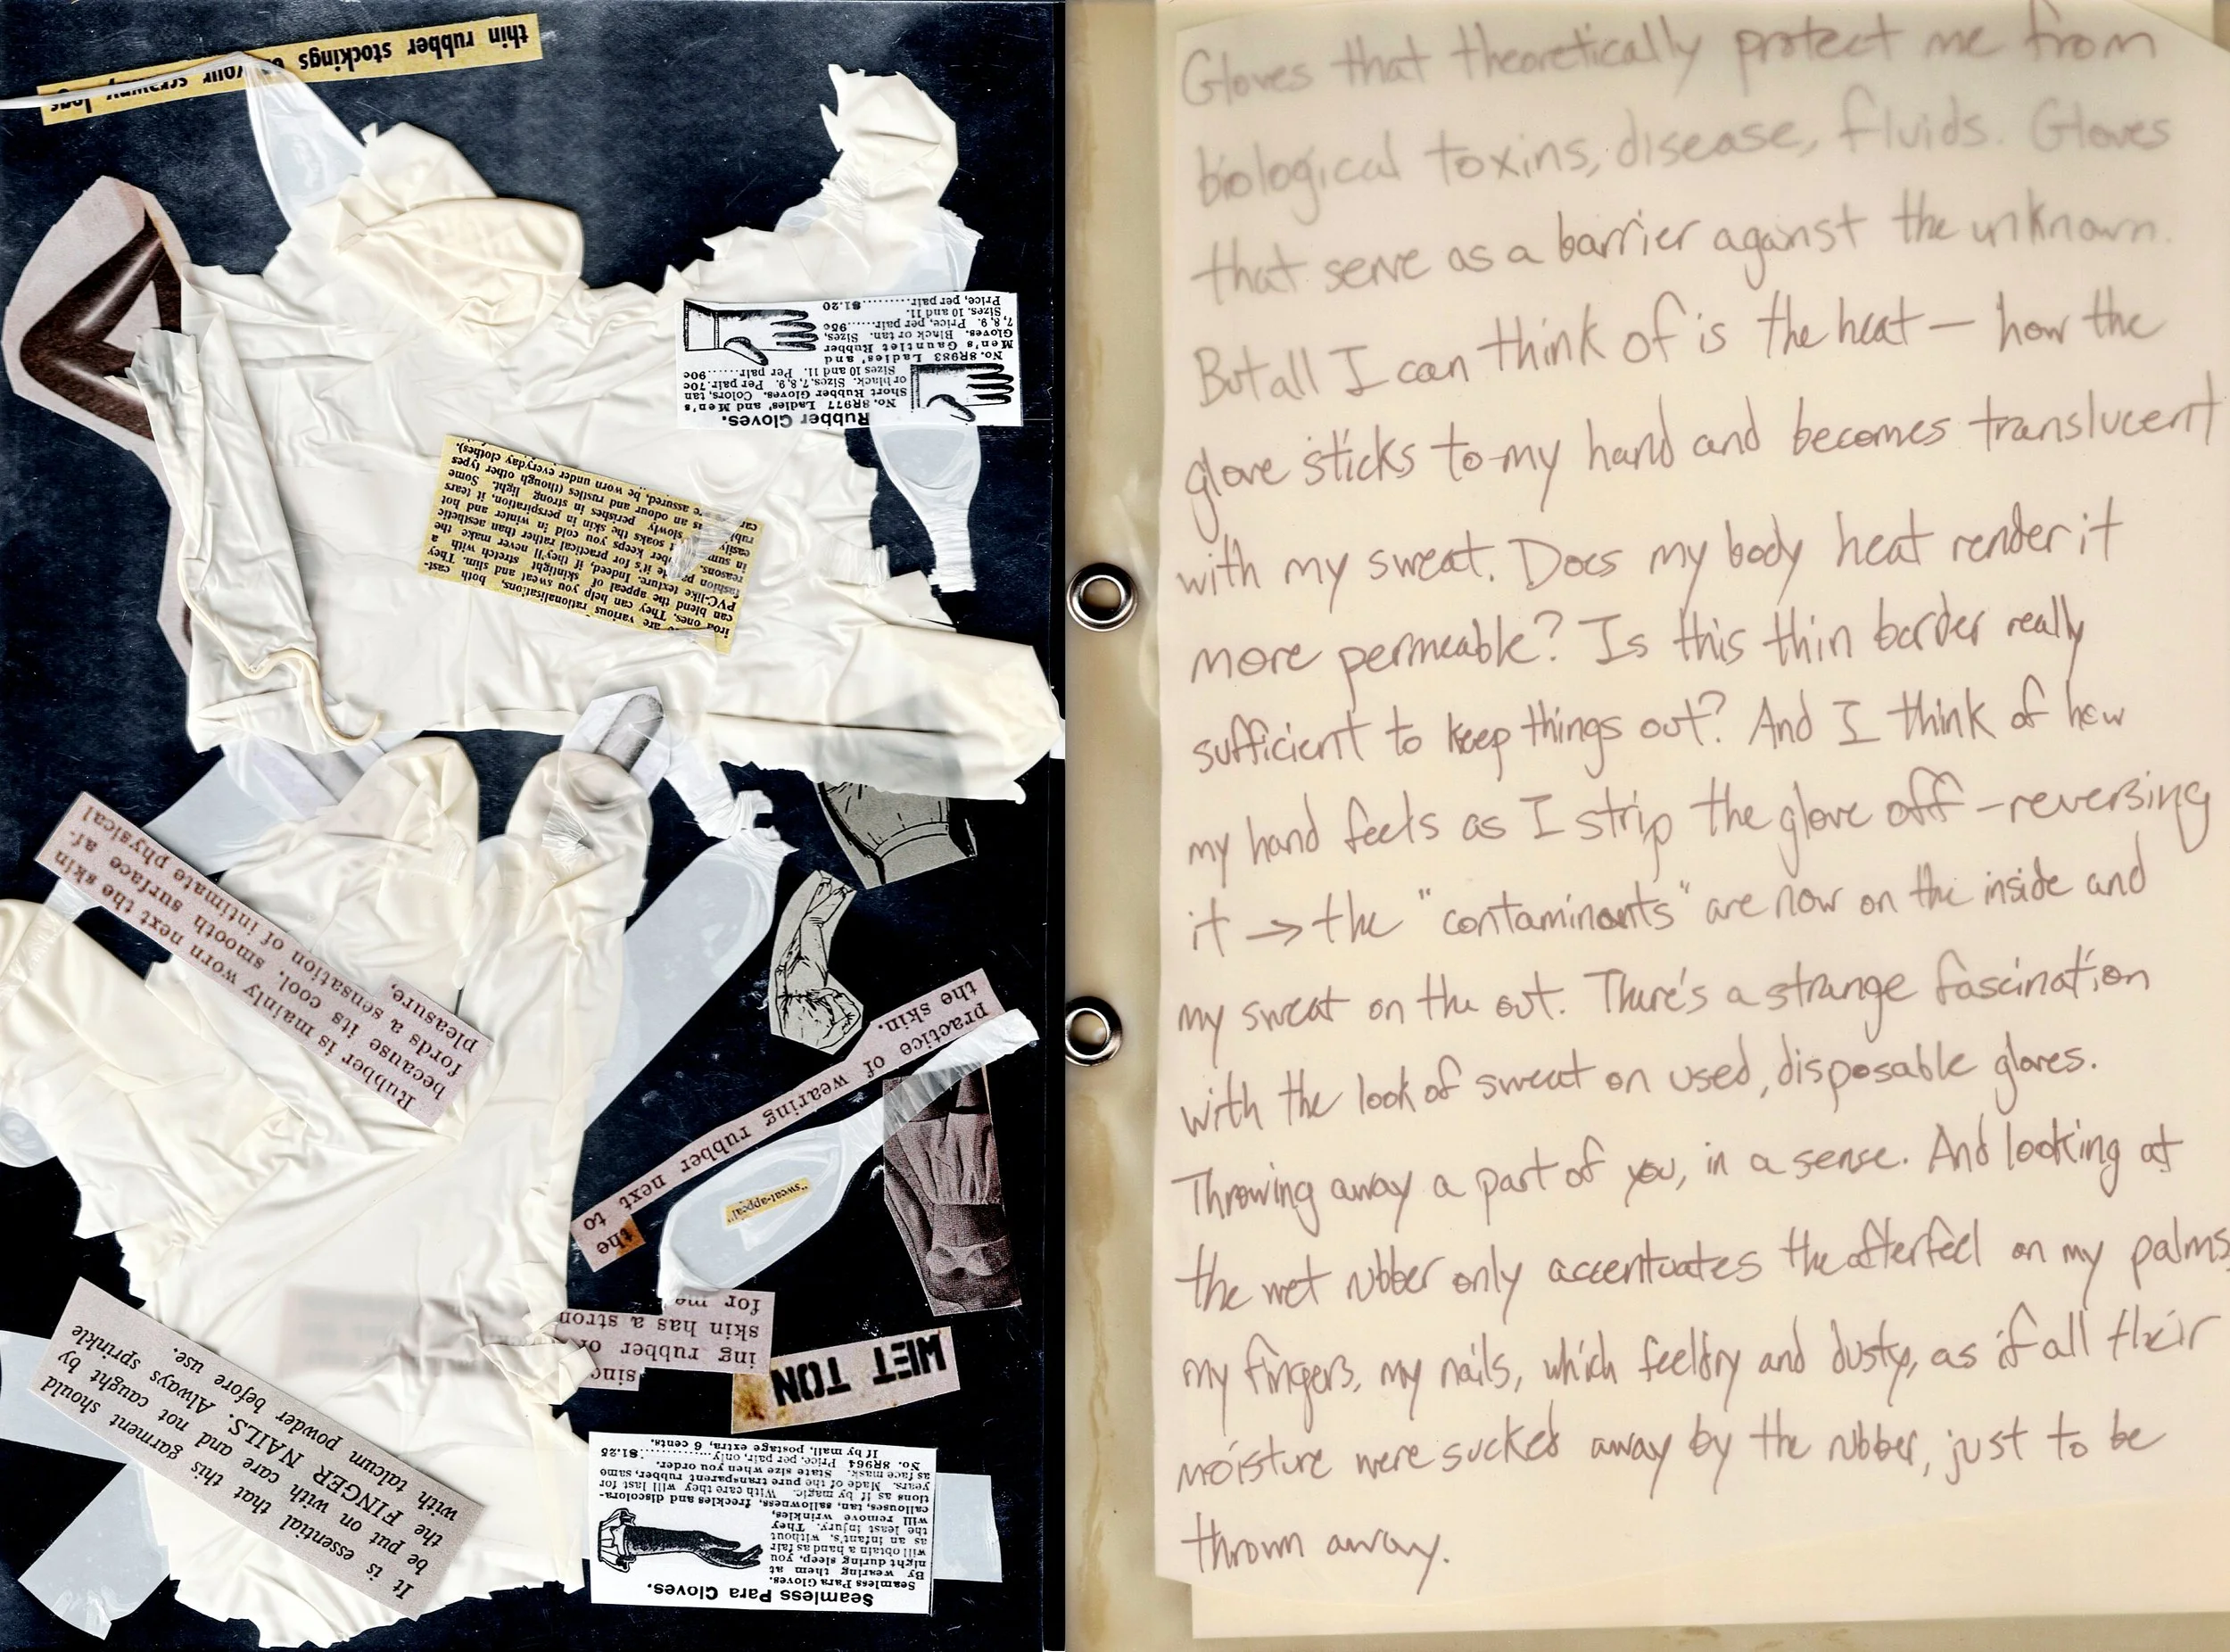 thin rubber stockings your scrawny legs
Rubber Gloves.
No. 8R977 Ladies' and Men's
Short Rubber Gloves. Colors, tan
or black. Sizes, 7, 8, 9. Per pair.70c
Sizes 10 and 11. Per pair......90c
No. 8R983 Ladies' and
Men's Gauntlet Rubber
Gloves. Black or tan. Sizes,
7, 8, 9. Price, per pair.....95c
Sizes, 10 and 11.
Price, per pair..........$1.20
are various rationalisations, both
ones. They can help you sweat and slim. They
can blend the appeal of skintight stretch with a
PVC-like texture. Indeed, if they'll never make the
fashion it's for practical rather than aesthetic
reasons. keeps you cold in winter and hot
in soaks the skin in perspiration, it tears
easily slowly perishes in strong light. Some
as an odour and rustles (though other types
can assured, be worn under everyday clothes).
Rubber is mainly worn next the skin
because its cool, smooth surface af-
fords a sensation of intimate physical
pleasure,
the practice of wearing rubber next to
the skin.
"sweat-appeal"
sinc
ing rubber
skin has a stron
for me
WET TON
It is essential that this garment should
be put on with care and not caught by
the FINGER NAILS. Always sprinkle
with talcum powder before use.
Seamless Para Gloves.
Seamless Para Gloves.
By wearing them at
night during sleep, you
will obtain a hand as fair
as an infant's, without
the least injury. They
will remove wrinkles,
callouses, tan, sallowness, freckles and discolora-
tions as if by magic. With care they will last for
years. Made of the pure transparent rubber, same
as face mask. State size when you order.
No. 8R964 Price, per pair, only............$1.25
If by mail, postage extra, 6 cents.
Gloves that theoretically protect me from
biological toxins, disease, fluids. Gloves
that serve as a barrier against the unknown.
But all I can think of is the heat — how the
glove sticks to my hand and becomes translucent
with my sweat. Does my body heat render it
more permeable? Is this thin border really
sufficient to keep things out? And I think of how
my hand feels as I strip the glove off – reversing
it → the "contaminants" are now on the inside and
my sweat on the out. There's a strange fascination
with the look of sweat on used, disposable gloves.
Throwing away a part of you, in a sense. And looking at
the wet rubber only accentuates the afterfeel on my palms,
my fingers, my nails, which feel dry and dusty, as if all their
moisture were sucked away by the rubber, just to be
thrown away.